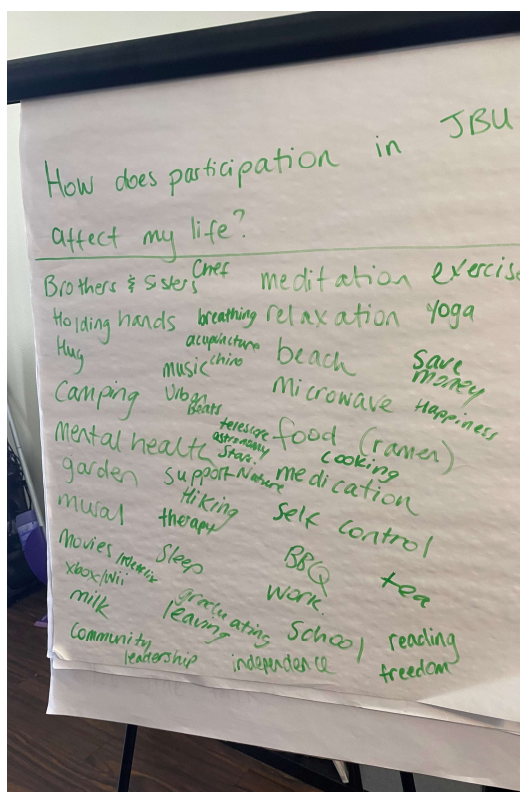 How does participation in JBU
affect my life?
Brothers & Sisters Chef meditation exercise
Holding hands breathing relaxation yoga
Hug acupuncture beach save
music chiro money
Camping Urban Beats Microwave Happiness
Mental health telescope astronomy Stars food (ramen)
cooking
garden support Nature medication
mural Hiking self control
therapy
Movies Sleep BBQ tea
xbox/wii work
milk graduating School reading
leaving
Community leadership independence freedom